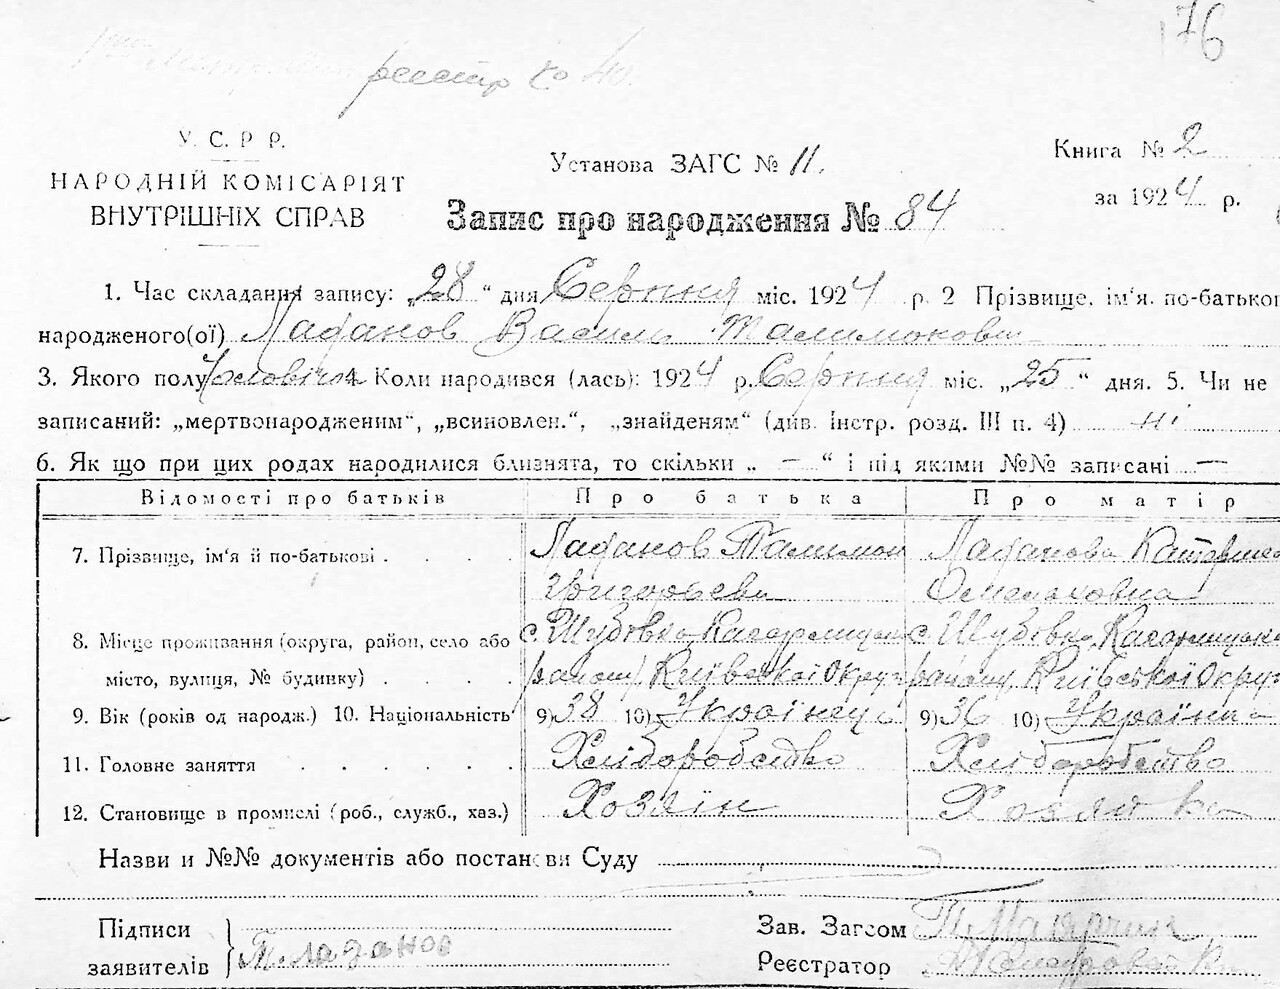 176
реестр № 40
У. С. Р Р.
НАРОДНІЙ КОМІСАРІЯТ
ВНУТРІШНІХ СПРАВ
Установа ЗАГС № 11.
Книга № 2
за 1924 р.
Запис про народження № 84
1. Час складання запису: „28“ дня Серпня міс. 1924 р. 2 Прізвище, ім'я, по-батькові
народженого(ої) Ладанов Василь Талимонович
3. Якого полу Чоловічої 4. Коли народився (лась): 1924 р. Серпня міс. „25“ дня. 5. Чи не
записаний: „мертвонародженим“, „всиновлен.“, „знайденям“ (див. Інстр. розд. III п. 4) ні
6. Як що при цих родах народилися близнята, то скільки „ — “ і під якими №№ записані —
Відомості про батьків Про батька Про матір
7. Прізвище, ім'я й по-батькові . . . . Ладанов Талимон Ладанова Катерина
Григорьеви Омеляховна
8. Місце проживання (округа, район, село або с. Шубовка Кагарлицьк с. Шубовка Кагарлицьк
місто, вулиця, № будинку) . . . . району Київської Округ району Київської Округ
9. Вік (років од народж.) 10. Національність 9) 38 10) Українець 9) 36 10) Українка
11. Головне заняття . . . . . . Хліборобство Хліборобство
12. Становище в промислі (роб., служб., хаз.) Хозяїн Хозяйка
Назви и №№ документів або постанови Суду
Підписи
заявителів Т. Ладанов
Зав. Загсом
Реєстратор